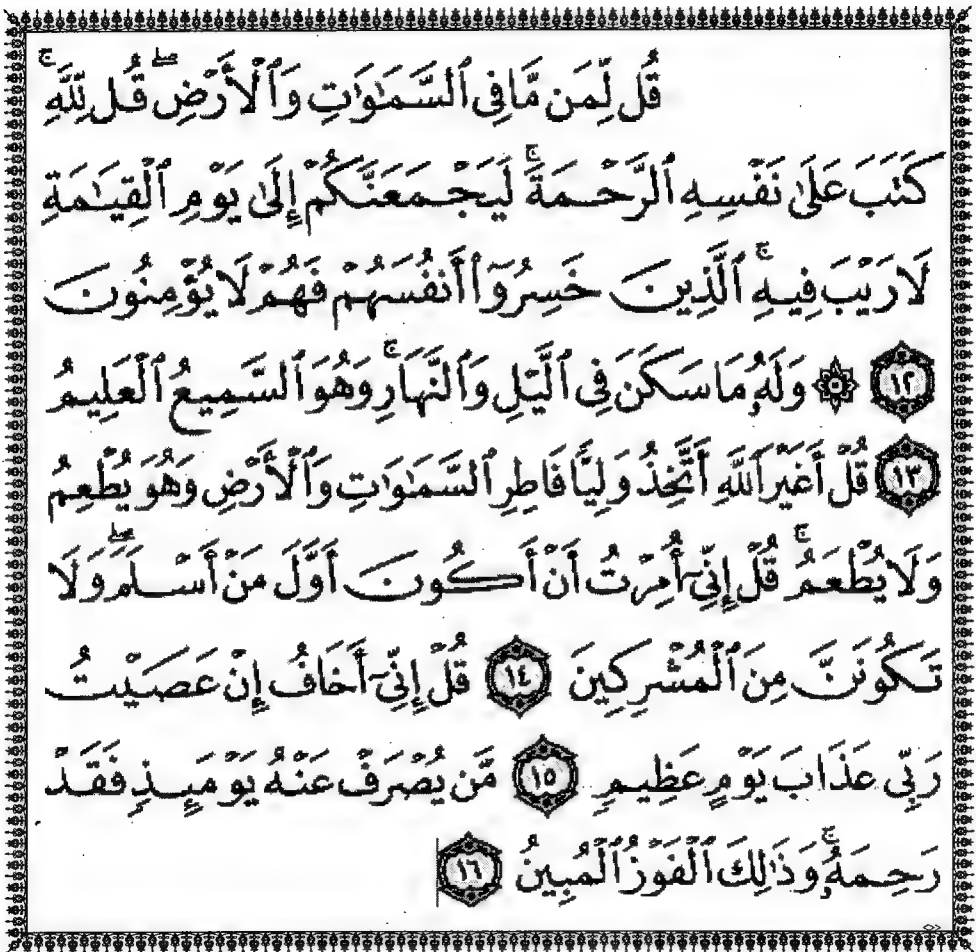 قُل لِّمَن مَّا فِى ٱلسَّمَٰوَٰتِ وَٱلْأَرْضِ ۖ قُل لِّلَّهِ ۚ
كَتَبَ عَلَىٰ نَفْسِهِ ٱلرَّحْمَةَ ۚ لَيَجْمَعَنَّكُمْ إِلَىٰ يَوْمِ ٱلْقِيَٰمَةِ
لَا رَيْبَ فِيهِ ۚ ٱلَّذِينَ خَسِرُوٓا۟ أَنفُسَهُمْ فَهُمْ لَا يُؤْمِنُونَ
١٢ ۞ وَلَهُۥ مَا سَكَنَ فِى ٱلَّيْلِ وَٱلنَّهَارِ ۚ وَهُوَ ٱلسَّمِيعُ ٱلْعَلِيمُ
١٣ قُلْ أَغَيْرَ ٱللَّهِ أَتَّخِذُ وَلِيًّا فَاطِرِ ٱلسَّمَٰوَٰتِ وَٱلْأَرْضِ وَهُوَ يُطْعِمُ
وَلَا يُطْعَمُ ۗ قُلْ إِنِّىٓ أُمِرْتُ أَنْ أَكُونَ أَوَّلَ مَنْ أَسْلَمَ ۖ وَلَا
تَكُونَنَّ مِنَ ٱلْمُشْرِكِينَ ١٤ قُلْ إِنِّىٓ أَخَافُ إِنْ عَصَيْتُ
رَبِّى عَذَابَ يَوْمٍ عَظِيمٍ ١٥ مَّن يُصْرَفْ عَنْهُ يَوْمَئِذٍ فَقَدْ
رَحِمَهُۥ ۚ وَذَٰلِكَ ٱلْفَوْزُ ٱلْمُبِينُ ١٦